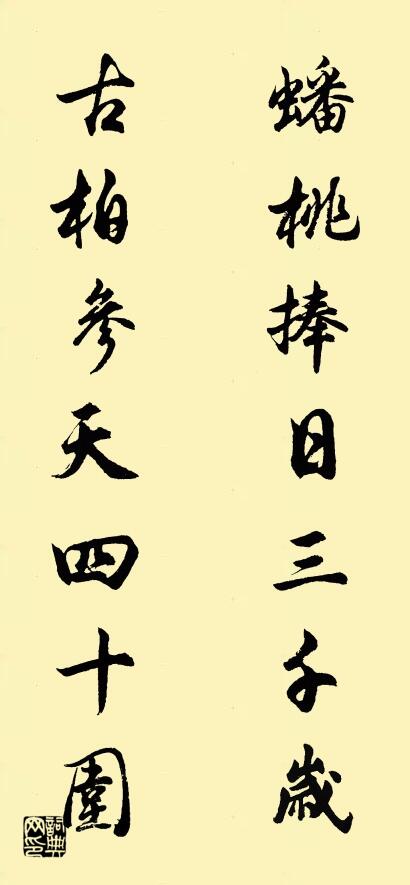 蟠桃捧日三千歲
古柏參天四十圍